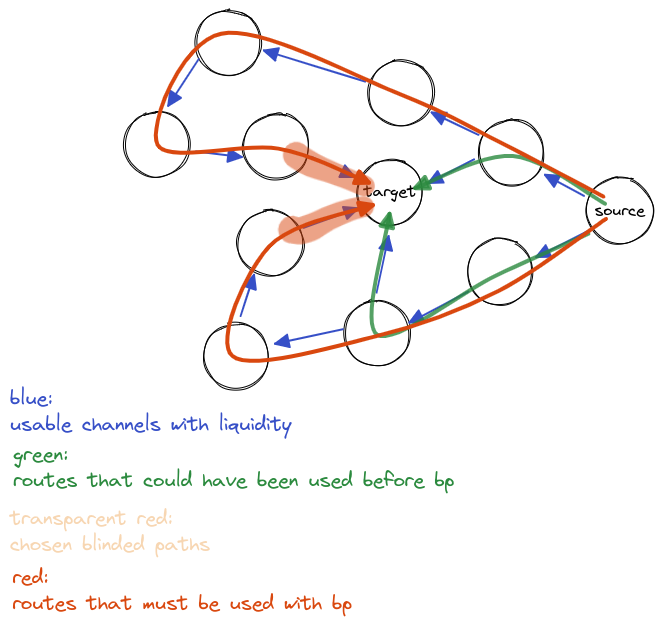 target
source
blue:
usable channels with liquidity
green:
routes that could have been used before bp
transparent red:
chosen blinded paths
red:
routes that must be used with bp